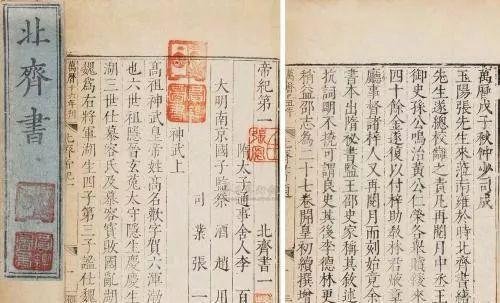 北齊書
帝紀第一 北齊書一
隋太子通事舍人李百
大明南京國子監祭酒趙用
司業張一
神武上
高祖神武皇帝姓高名歡字賀六渾渤
也六世祖隱晉玄菟太守隱生慶慶生
湖三世仕慕容氏及慕容寶敗國亂湖
魏爲右將軍湖生四子第三子謐仕魏
萬曆十六年刊
萬曆戊子秋仲少司成
玉陽張先生來蒞南雍於時北齊書
先生遂總校讎之責凡再閱月中丞王
御史孫公鳴治黃公仁榮各
四十餘金遠復以付梓助教林君
廳事督諸梓人又再閱月而刻始竟
書本出隋秘書監王邵史家稱其叙述
抗詞明不撓可謂良史其後李德林
稍益邵志為二十七卷開皇初續撰增